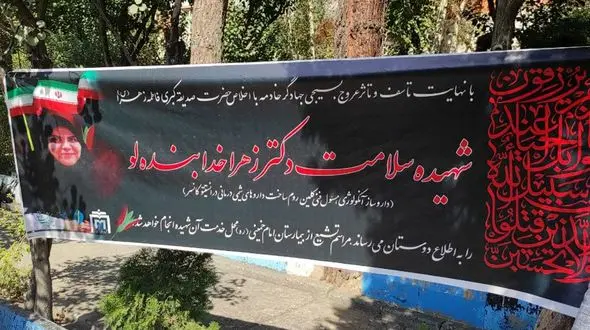 با نهایت تاسف و تاثر عروج بسیجی جهادگر خادمه با اخلاص حضرت صدیقه کبری فاطمه زهرا (س)
شهیده سلامت دکتر زهرا خدابنده لو
(داروساز آنکولوژی مسئول فنی کلین روم ساخت داروهای شیمی درمانی در انستیتو کانسر)
را به اطلاع دوستان می رساند مراسم تشییع از بیمارستان امام خمینی (ره) محل خدمت آن شهیده انجام خواهد شد